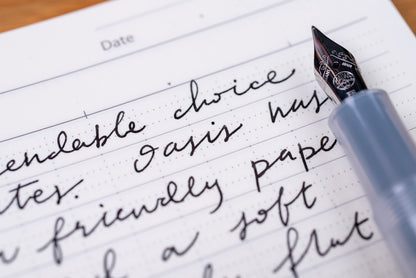 Date
endable choice
tes. Oasis has
friendly pape
a soft
flat